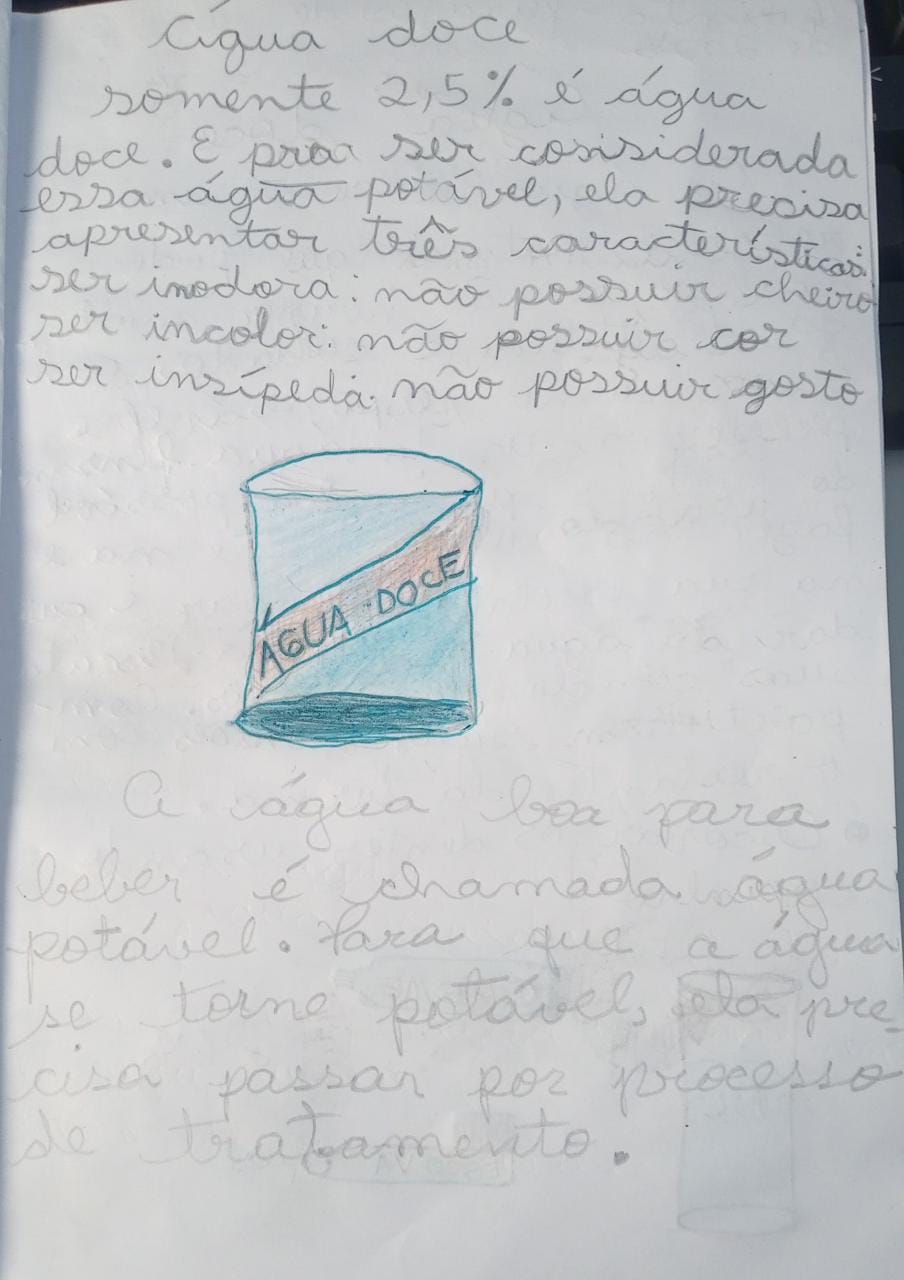 Água doce
somente 2,5% é água
doce. E pra ser cosisiderada
essa água potável, ela precisa
apresentar três características:
ser inodora: não possuir cheiro
ser incolor: não possuir cor
ser insípeda: não possuir gosto
ÁGUA DOCE
A água boa para
beber é chamada água
potável. Para que a água
se torne potável, ela pre-
cisa passar por processo
de tratamento.